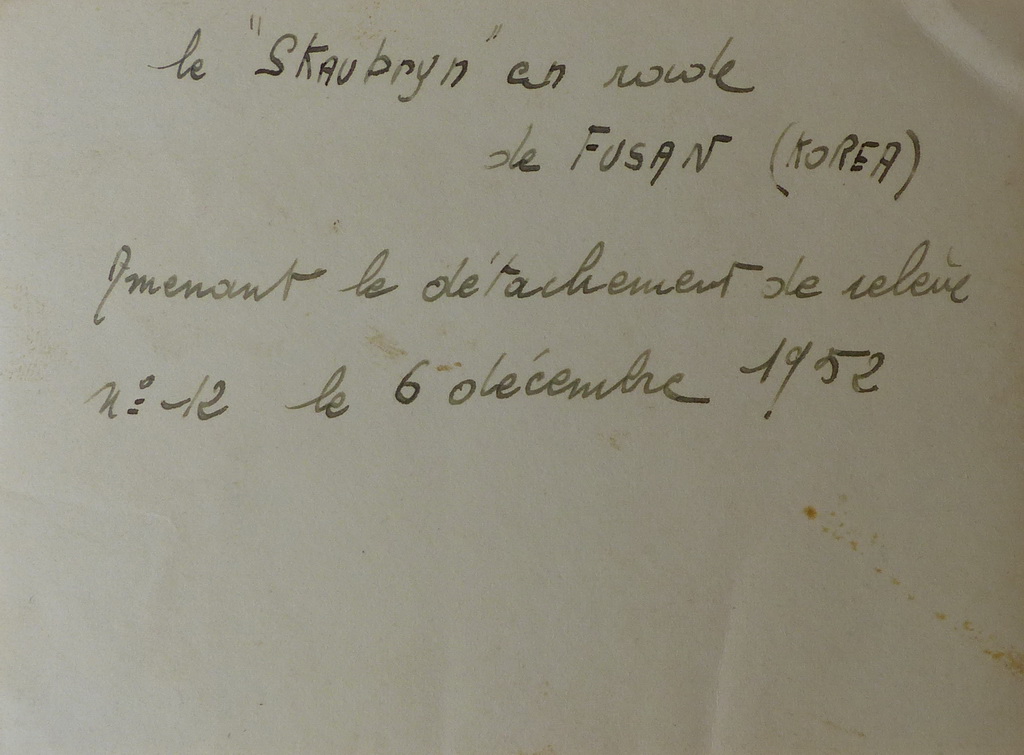 le "SKAUbryn" en rade
de FUSAN (KOREA)
Amenant le détachement de relève
n° 12 le 6 décembre 1952